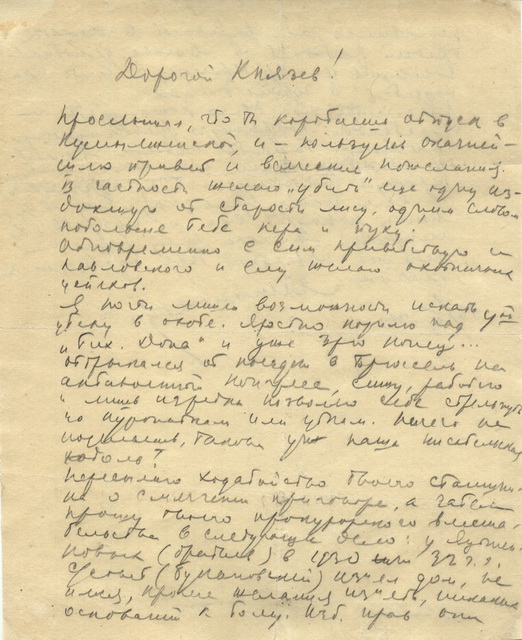 Дорогой Князев!
Прослышал, что ты коротаешь отпуск в
Кумылженской, и – пользуясь оказией –
шлю привет и всяческие пожелания.
В частности желаю „убить" еще одну из-
дохшую от старости лису, одним словом
побольше тебе пера и пуху.
Одновременно с сим приветствую и
Павловского и ему желаю охотничьих
успехов.
Я почти лишен возможности искать
утеху в охоте. Яростно корплю над
„Тих. Дона" и уже зрю конец...
Открылся от поездки в Брюссель на
антивоенный конгресс, сижу, работаю
и лишь изредка позволяю себе стрельнуть
по куропаткам или уткам. Ничего не
поделаешь, такова уж наша писательская
Пересылаю ходатайство твоего станични-
ка о смягчении приговора, а затем
прошу твоего прокурорского вмеша-
тельства в следующее дело: у
(братья) в 1930 или 32 г.
с/совет (Букановский) изъял дом, не
имея, кроме желания изъять, никаких
оснований к тому. Изб. прав они